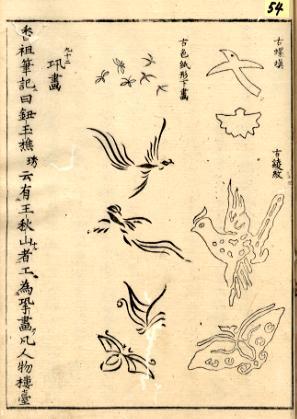 54
古螺填
古綾紋
古色紙形下畫
九十二
畫
香祖筆記曰鈕玉樵琇云有王秋山者工為畫凡人物樓臺